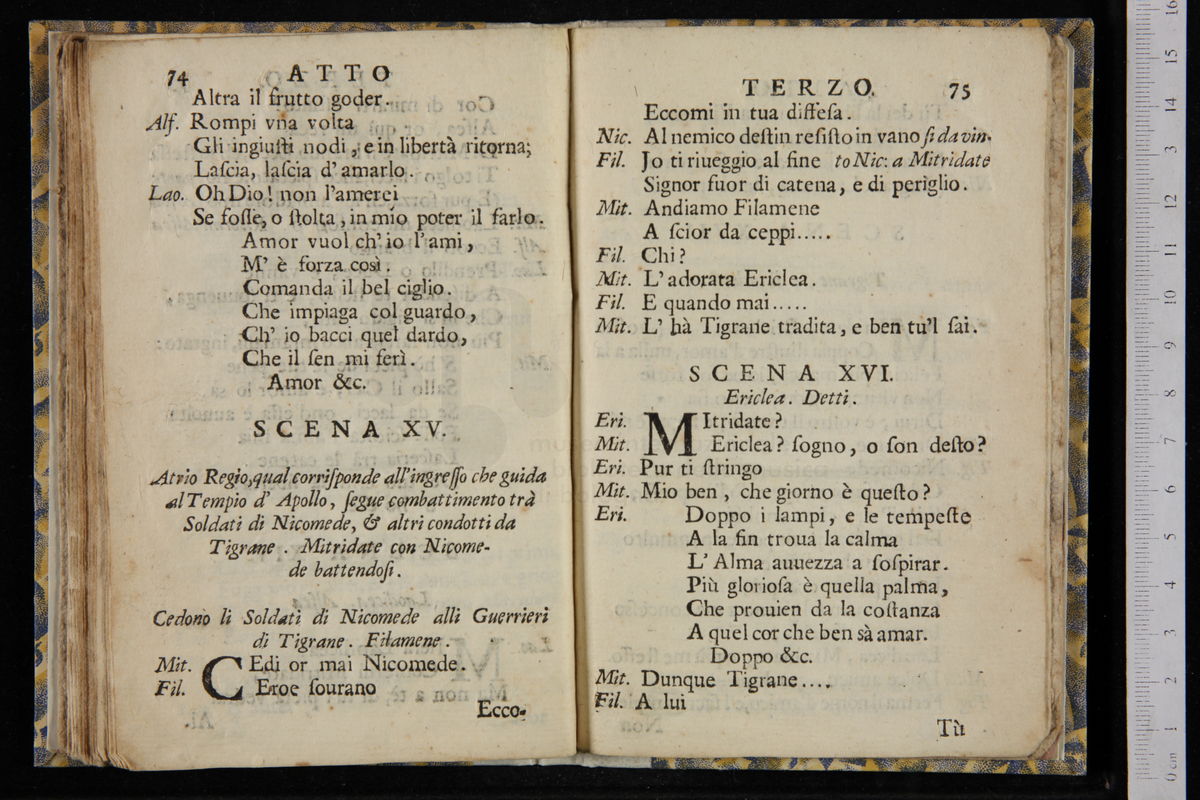 74 ATTO
Altra il frutto goder.
Alſ. Rompi vna volta
Gli ingiuſti nodi, e in libertà ritorna;
Laſcia, laſcia d' amarlo.
Lao. Oh Dio! non l'amerei
Se foſſe, o ſtolta, in mio poter il farlo.
Amor vuol ch' io l' ami,
M' è forza così.
Comanda il bel ciglio.
Che impiaga col guardo,
Ch' io bacci quel dardo,
Che il ſen mi ferì.
Amor &c.
SCENA XV.
Atrio Regio, qual corriſponde all'ingreſſo che guida
al Tempio d' Apollo, ſegue combattimento trà
Soldati di Nicomede, & altri condotti da
Tigrane. Mitridate con Nicome-
de battendoſi.
Cedono li Soldati di Nicomede alli Guerrieri
di Tigrane. Filamene.
Mit. CEdi or mai Nicomede.
Fil. Eroe ſourano
Ecco-
TERZO. 75
Eccomi in tua diffeſa.
Nic. Al nemico deſtin reſiſto in vano ſi da vin-
Fil. Jo ti riueggio al fine to Nic: a Mitridate
Signor fuor di catena, e di periglio.
Mit. Andiamo Filamene
A ſcior da ceppi.....
Fil. Chi?
Mit. L' adorata Ericlea.
Fil. E quando mai.....
Mit. L' hà Tigrane tradita, e ben tu'l ſai.
SCENA XVI.
Ericlea. Detti.
Eri. MItridate?
Mit. Ericlea? ſogno, o ſon deſto?
Eri. Pur ti ſtringo
Mit. Mio ben, che giorno è queſto?
Eri. Doppo i lampi, e le tempeſte
A la fin troua la calma
L' Alma auuezza a ſoſpirar.
Più glorioſa è quella palma,
Che prouien da la coſtanza
A quel cor che ben sà amar.
Doppo &c.
Mit. Dunque Tigrane....
Fil. A lui
Tù